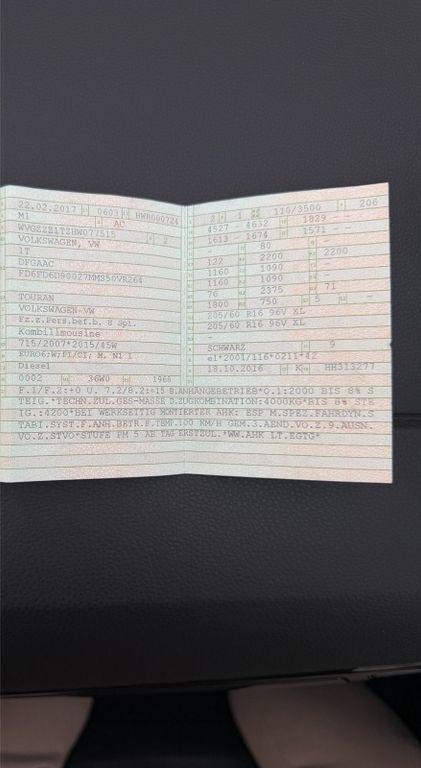 22.02.2017 0603 HWR000724
M1 AC
WVGZZZ1TZHW077515 2
VOLKSWAGEN, VW
1T
DFGAAC
FD6FD6D90027MMS50VR264
TOURAN
VOLKSWAGEN-VW
Fz.z.Pers.bef.b. 8 Spl.
Kombilimousine
715/2007*2015/45W
EURO6;W;PI/CI; M, N1 I
Diesel
0002 36W0 1968
2 1 110/3500 206
4527 - 4632 1829 - -
1613 - 1674 1571 - -
- 80 -
122 2200 2200
1160 1090 -
1160 1090 -
76 2375 71
1800 750 5 -
205/60 R16 96V XL
205/60 R16 96V XL
-
SCHWARZ 9
e1*2001/116*0211*42
18.10.2016 K HH313277
F.1/F.2:+0 U. 7.2/8.2:+15 B.ANHÄNGEBETRIEB*O.1:2000 BIS 8% S
TEIG.*TECHN.ZUL.GES-MASSE D.ZUGKOMBINATION:4000KG*BIS 8% STE
IG.:4200*BEI WERKSEITIG MONTIERTER AHK: ESP M.SPEZ.FAHRDYN.S
TABI.SYST.F.ANH.BETR.F.TEMP.100 KM/H GEM.3.AEND.VO.Z.9.AUSN.
VO.Z.STVO*STUFE PM 5 AB TAG ERSTZUL.*WW.AHK LT.EGTG*